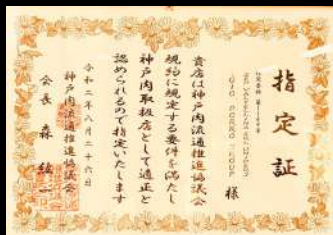 指定証
様
貴店は神戸肉流通推進協議会
規約に規定する要件を満たし
神戸肉取扱店として適正と
認められるので指定いたします
令和二年八月二十六日
神戸肉流通推進協議会
会長 森 紘一